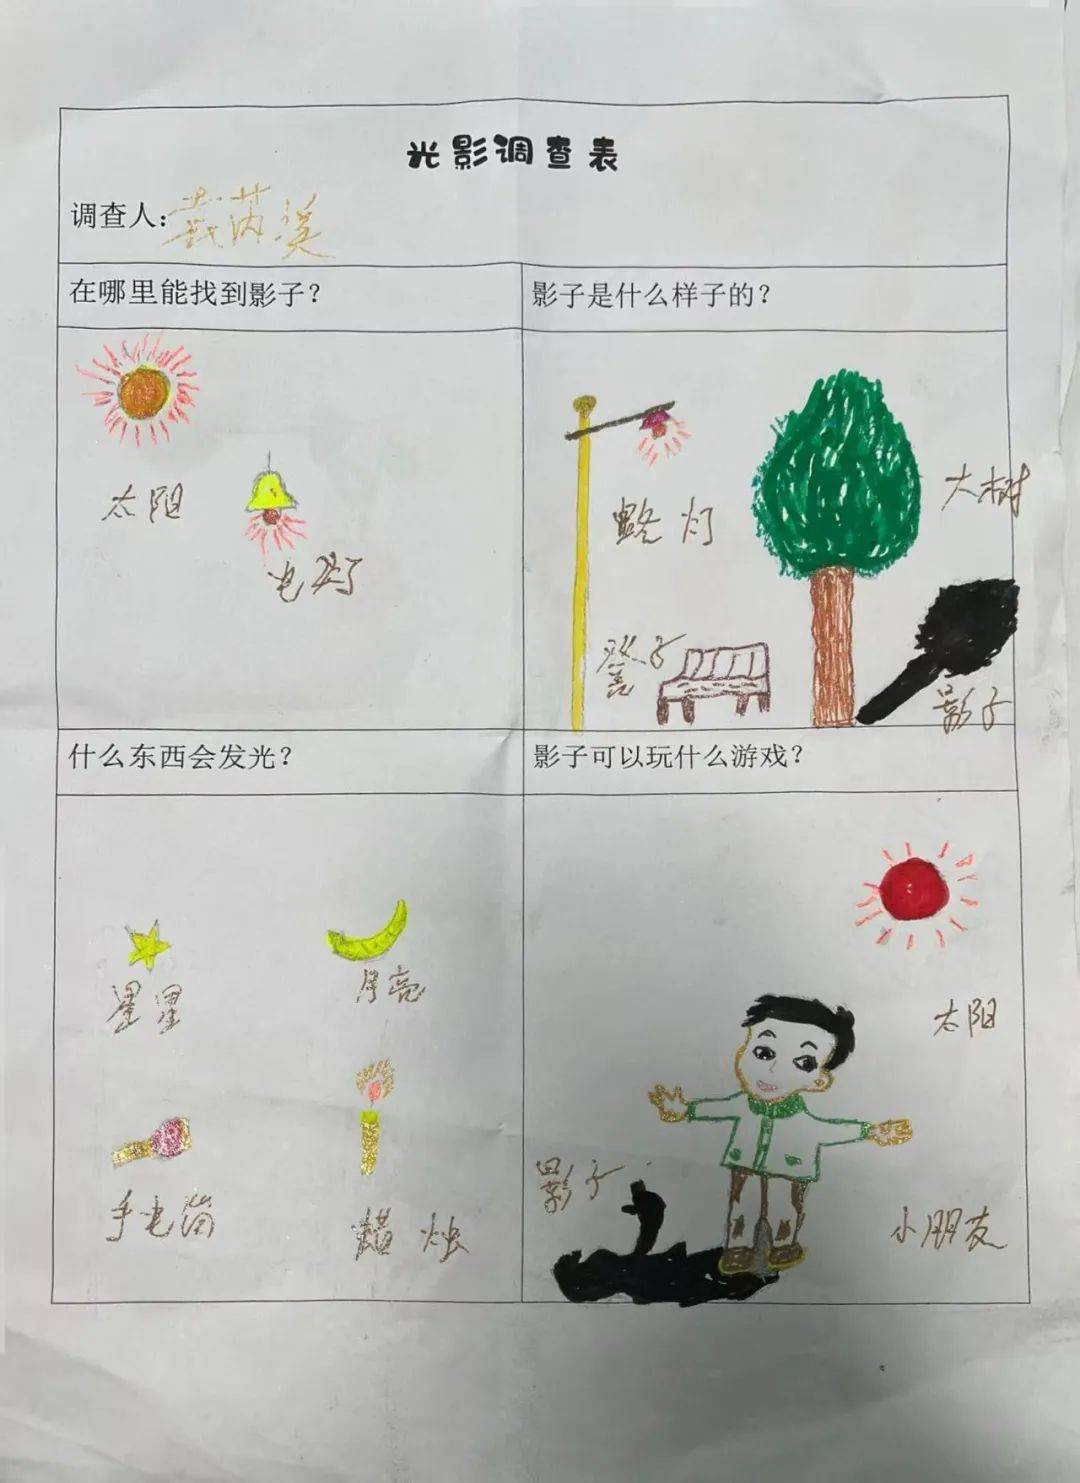 光影调查表
调查人：戴芮溪
在哪里能找到影子？
太阳
电灯
影子是什么样子的？
路灯
大树
凳子
影子
什么东西会发光？
星星
月亮
手电筒
蜡烛
影子可以玩什么游戏？
太阳
影子
小朋友